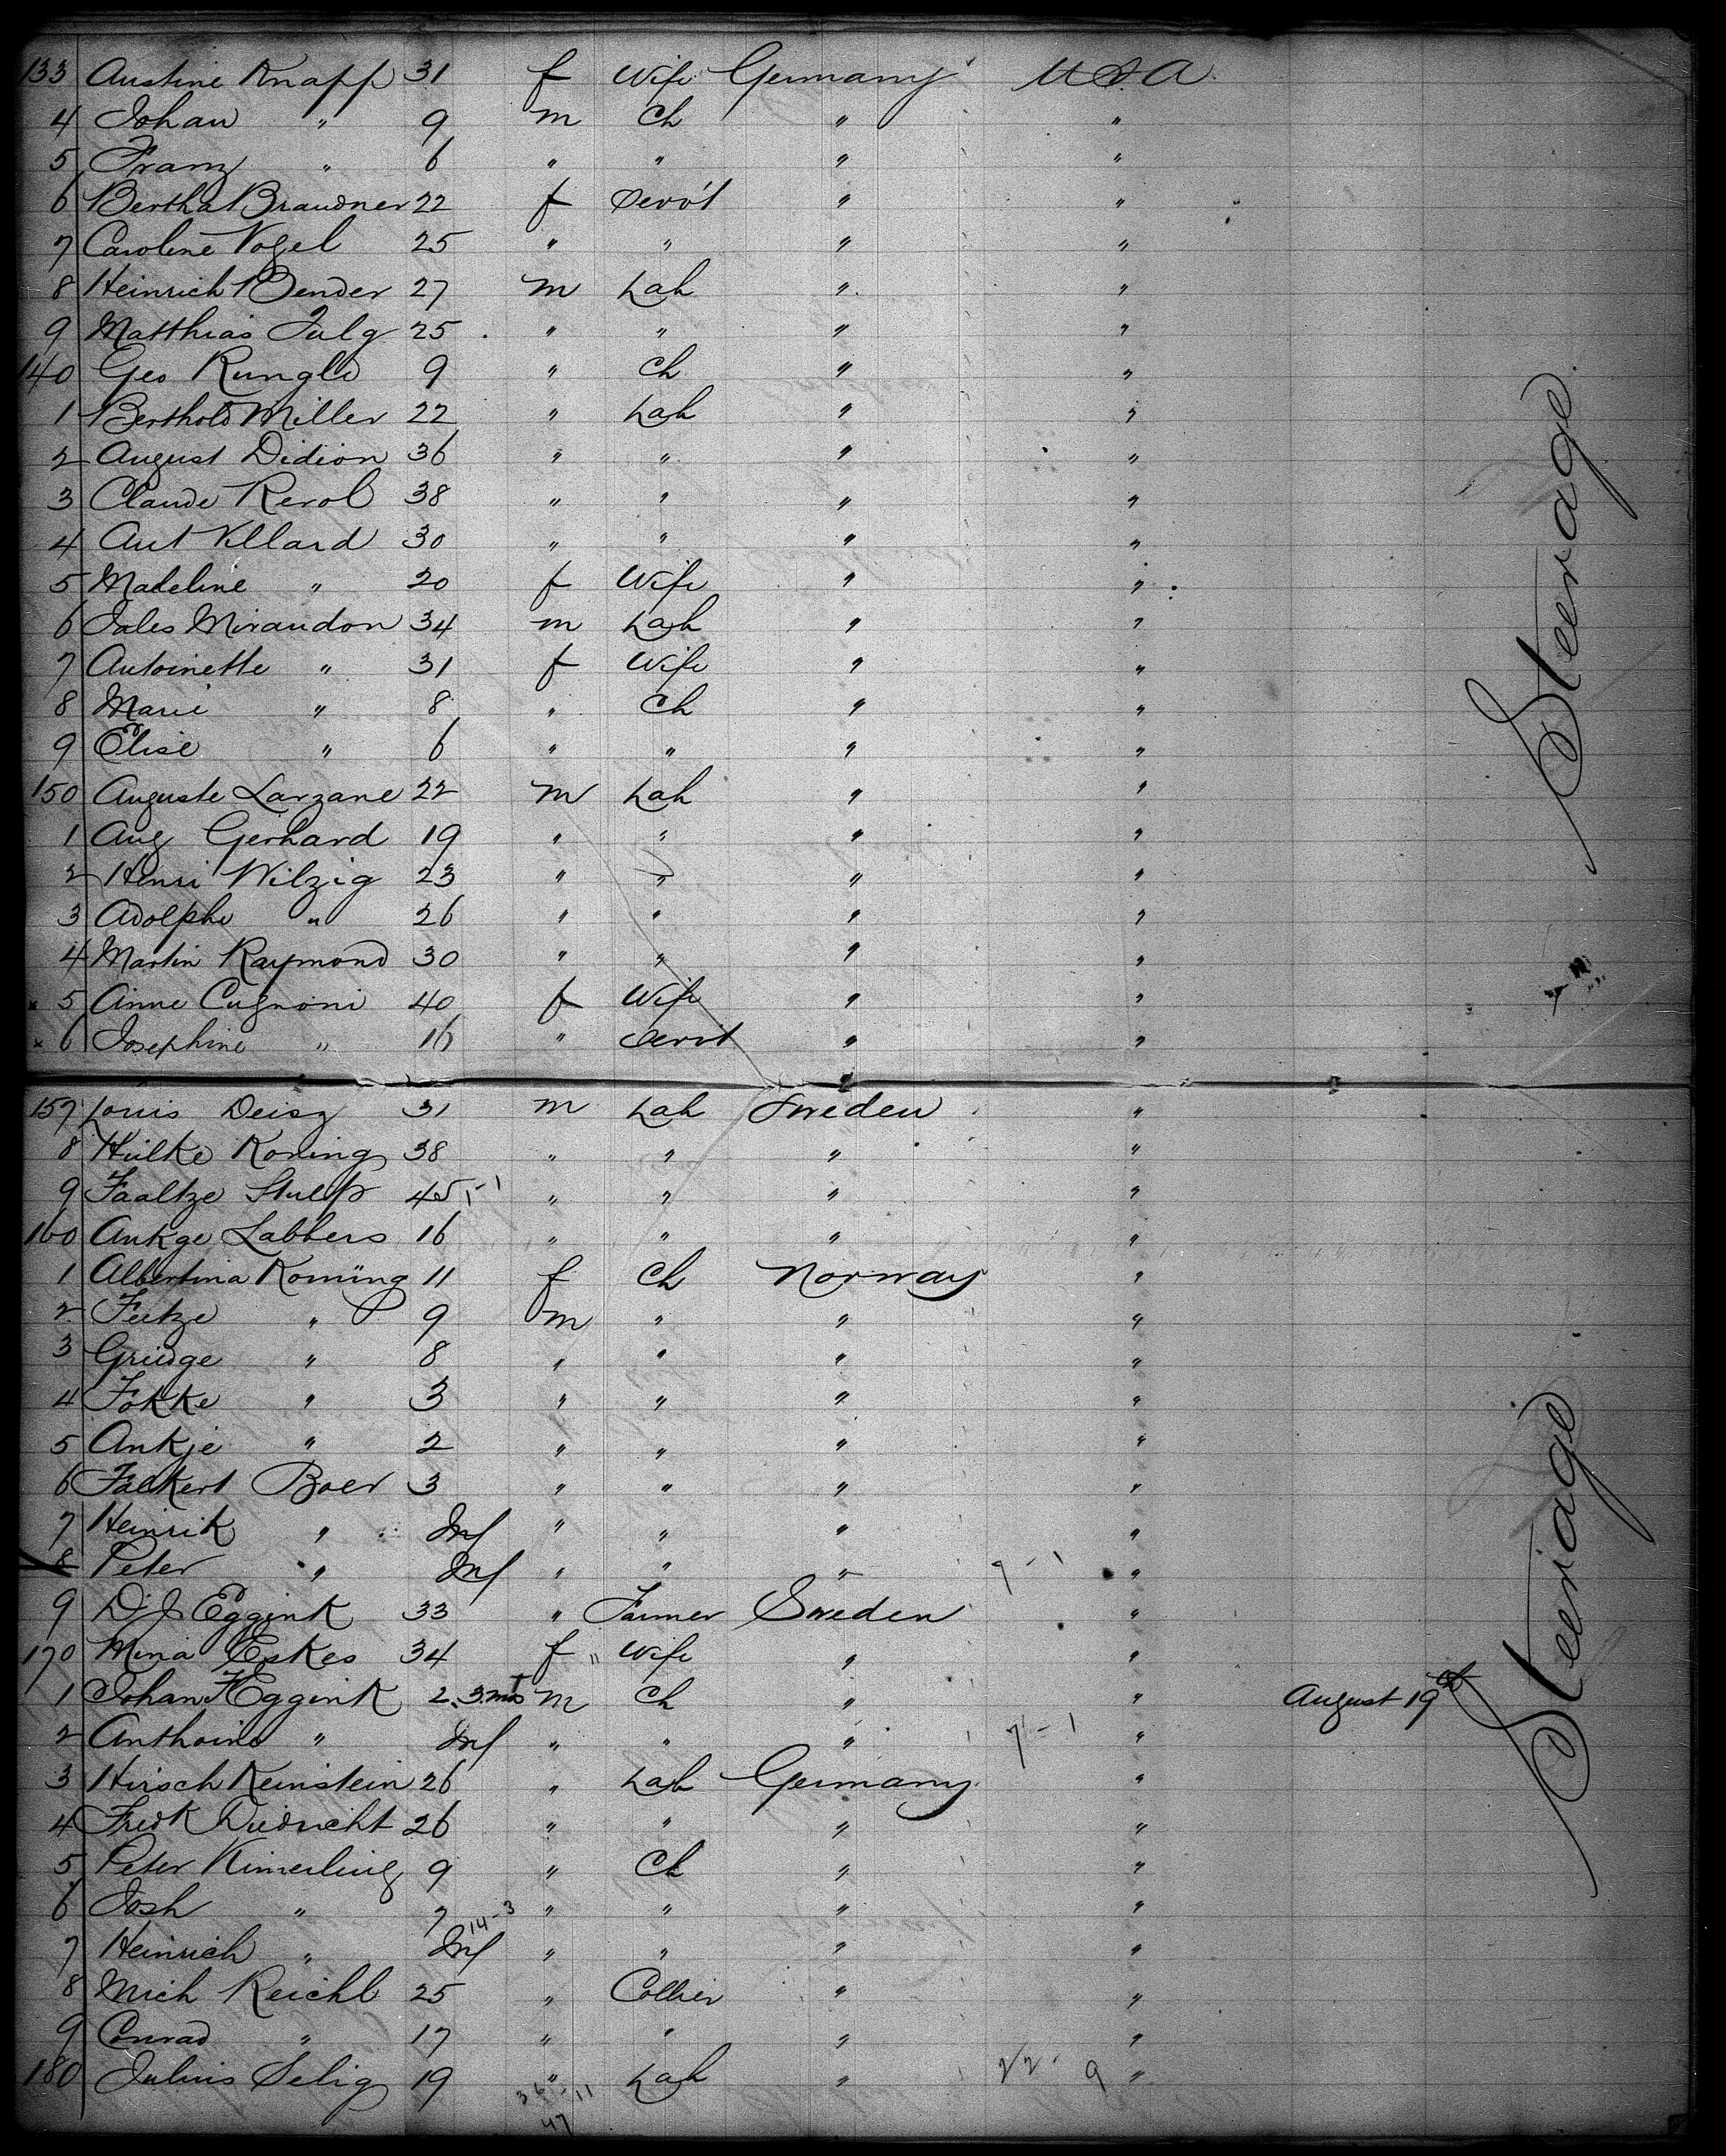 133 Austine Knapp 31 f Wife Germany U S A
4 Johan " 9 m Ch " "
5 Franz " 6 " " " "
6 Bertha Braudner 22 f Serv't " "
7 Caroline Vogel 25 " " " "
8 Heinrich Bender 27 m Lab " "
9 Matthias Julg 25 " " " "
140 Geo Rungle 9 " Ch " "
1 Berthold Miller 22 " Lab " "
2 August Didion 36 " " " "
3 Claude Rerol 38 " " " "
4 Ant Villard 30 " " " "
5 Madeline " 20 f Wife " "
6 Jules Miraudon 34 m Lab " "
7 Antoinette " 31 f Wife " "
8 Marie " 8 " Ch " "
9 Elise " 6 " " " "
150 Auguste Larzane 22 m Lab " "
1 Aug Gerhard 19 " " " "
2 Henri Wilzig 23 " " " "
3 Adolphe " 26 " " " "
4 Martin Raymond 30 " " " "
x 5 Anne Cugnoni 40 f Wife " "
x 6 Josephine " 16 " Servt " "
Steerage
157 Louis Deisz 31 m Lab Sweden "
8 Hilke Koning 38 " " " "
9 Faaltze Stulp 45 1-1 " " " "
160 Ankge Labbers 16 " " " "
1 Albertina Koning 11 f Ch Norway "
2 Feitze " 9 m " " "
3 Griedge " 8 " " " "
4 Fokke " 3 " " " "
5 Ankje " 2 " " " "
6 Faekert Boer 3 " " " "
7 Heinrik " Inf " " " "
8 Peter " Inf " " " 7-1 "
9 D J Eggink 33 " Farmer Sweden "
170 Mina Eskes 34 f " Wife " "
1 Johan H Eggink 2. 3 mts m Ch " " August 19th
2 Anthoine " Inf " " " 7-1 "
3 Hirsch Reinstein 26 " Lab Germany "
4 Fredk Diedricht 26 " " " "
5 Peter Kimerling 9 " Ch " "
6 Josh " 7 " " " "
7 Heinrich " Inf 14-3 " " " "
8 Mich Reichl 25 " Collier " "
9 Conrad " 17 " " " "
180 Julius Selig 19 " Lab " 22-9 "
36-11
47
Steerage